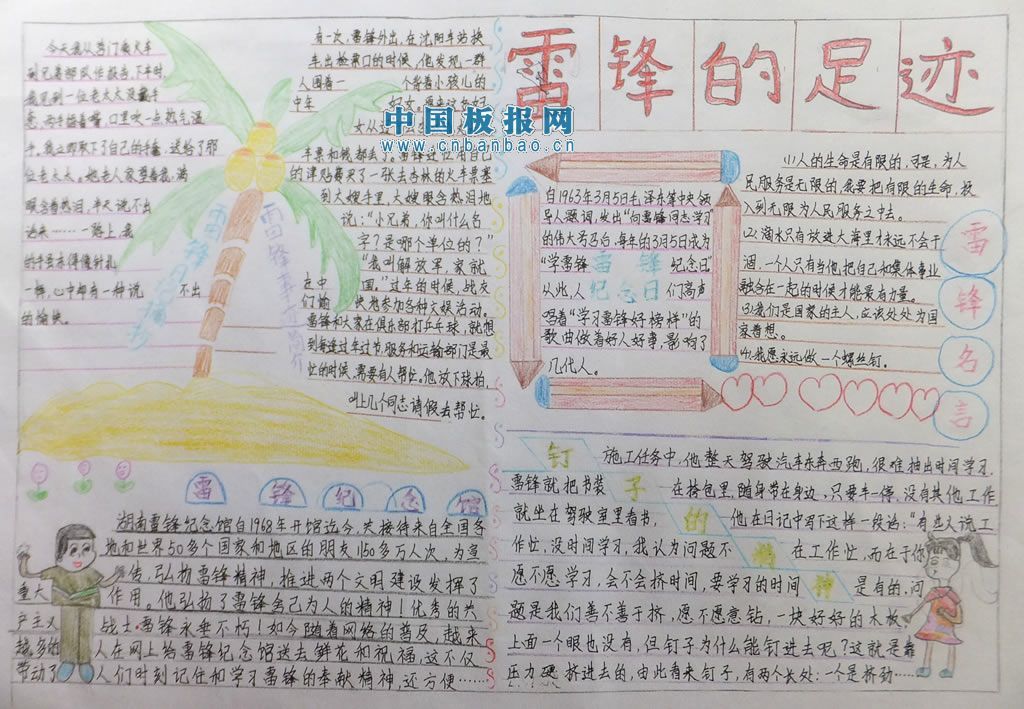 雷锋的足迹
中国板报网
www.cnbanbao.cn
今天我从营门乘火车
到兄弟部队作报告,下车时,
我见到一位老太太没戴手
套,两手捂着嘴,口里吹一点热气温
手。我立即取下了自己的手套,送给了那
位老太太。她老人家望着我,满
眼含着热泪,半天说不出
话来……一路上,我
的手虽冻得像针扎
一样,心中却有一种说 不出
的愉快。
雷锋日记摘抄
雷锋事迹简介
有一次,雷锋外出,在沈阳车站换
车出检票口的时候,他发现一群
人围着一 个背着小孩儿的
中年 妇女,原来这
女从
车票和钱都丢了。雷锋 用自己
的津贴费买了一张去吉林的火车票塞
到大嫂手里,大嫂眼含热泪地
说:“小兄弟,你叫什么名
字?是哪个单位的?”
“我叫解放军,家就
在中 国。”过年的时候,战友
们愉 快地参加各种文娱活动。
雷锋和大家在俱乐部打乒乓球,就想
到每逢过年过节,服务和运输部门是最
忙的时候,需要有人帮忙。他放下球拍,
叫上几个同志请假去帮忙。
自1963年3月5日毛泽东等中央领
导人题词,发出“向雷锋同志学习”
的伟大号召后,每年的3月5日成为
“学雷锋 雷锋 纪念日”
从此,人 纪念日 们高声
唱着“学习雷锋好榜样”的
歌曲做着好人好事,影响了
几代人。
(1)人的生命是有限的,可是,为人
民服务是无限的,我要把有限的生命,投
入到无限为人民服务之中去。
(2)滴水只有放进大海里才永远不会干
涸,一个人只有当他把自己和集体事业
融合在一起的时候才能最有力量。
(3)我们是国家的主人,应该处处为国
家着想。
(4)我愿永远做一个螺丝钉。
雷锋名言
雷锋纪念馆
湖南雷锋纪念馆自1968年开馆迄今,共接待来自全国各
地和世界50多个国家和地区的朋友1150多万人次,为宣
传,弘扬雷锋精神,推进两个文明建设发挥了
重大 作用。他弘扬了雷锋舍己为人的精神!优秀的共
产主义 战士·雷锋永垂不朽!如今随着网络的普及,越来
越多的 人在网上给雷锋纪念馆送去鲜花和祝福,这不仅
带动了 人们时刻记住和学习雷锋的奉献精神,还方便……
钉子的精神
施工任务中,他整天驾驶汽车东奔西跑,很难抽出时间学习,
雷锋就把书装 在挎包里,随身带在身边,只要车一停,没有其他工作,
就坐在驾驶室里看书, 他在日记中写下这样一段话:“有些人说工
作忙,没时间学习,我认为问题不 在工作忙,而在于你
愿不愿学习,会不会挤时间,要学习的时间 是有的,问
题是我们善不善于挤,愿不愿意钻,一块好好的木板,
上面一个眼也没有,但钉子为什么能钉进去呢?这就是靠
压力硬挤进去的,由此看来钉子,有两个长处:一个是挤劲……